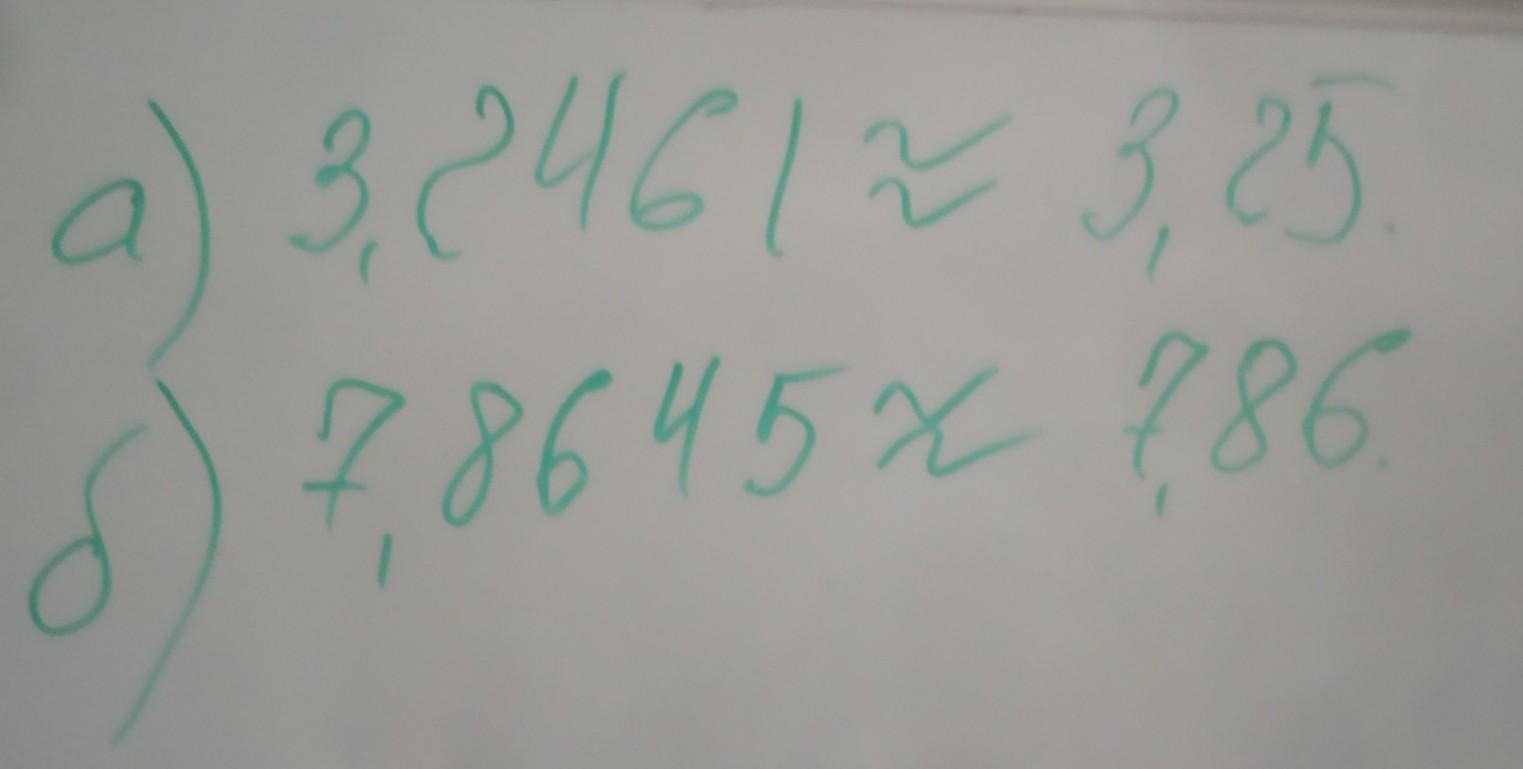 а) 3,2461 ≈ 3,25.
б) 7,8645 ≈ 7,86.